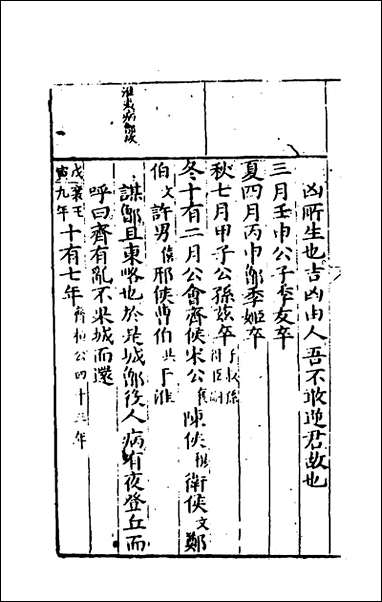 淮夷病鄫故
凶所生也吉凶由人吾不敢逆君故也
三月壬申公子季友卒
夏四月丙申鄫季姬卒
秋七月甲子公孫兹卒子叔孫得臣嗣
冬十有二月公會齊侯宋公襄陳侯穆衛侯文鄭
伯文許男僖邢侯曹伯共于淮
謀鄫且東略也於是城鄫役人病有夜登丘而
呼曰齊有亂不果城而還
戊寅襄王九年十有七年齊桓公四十三年